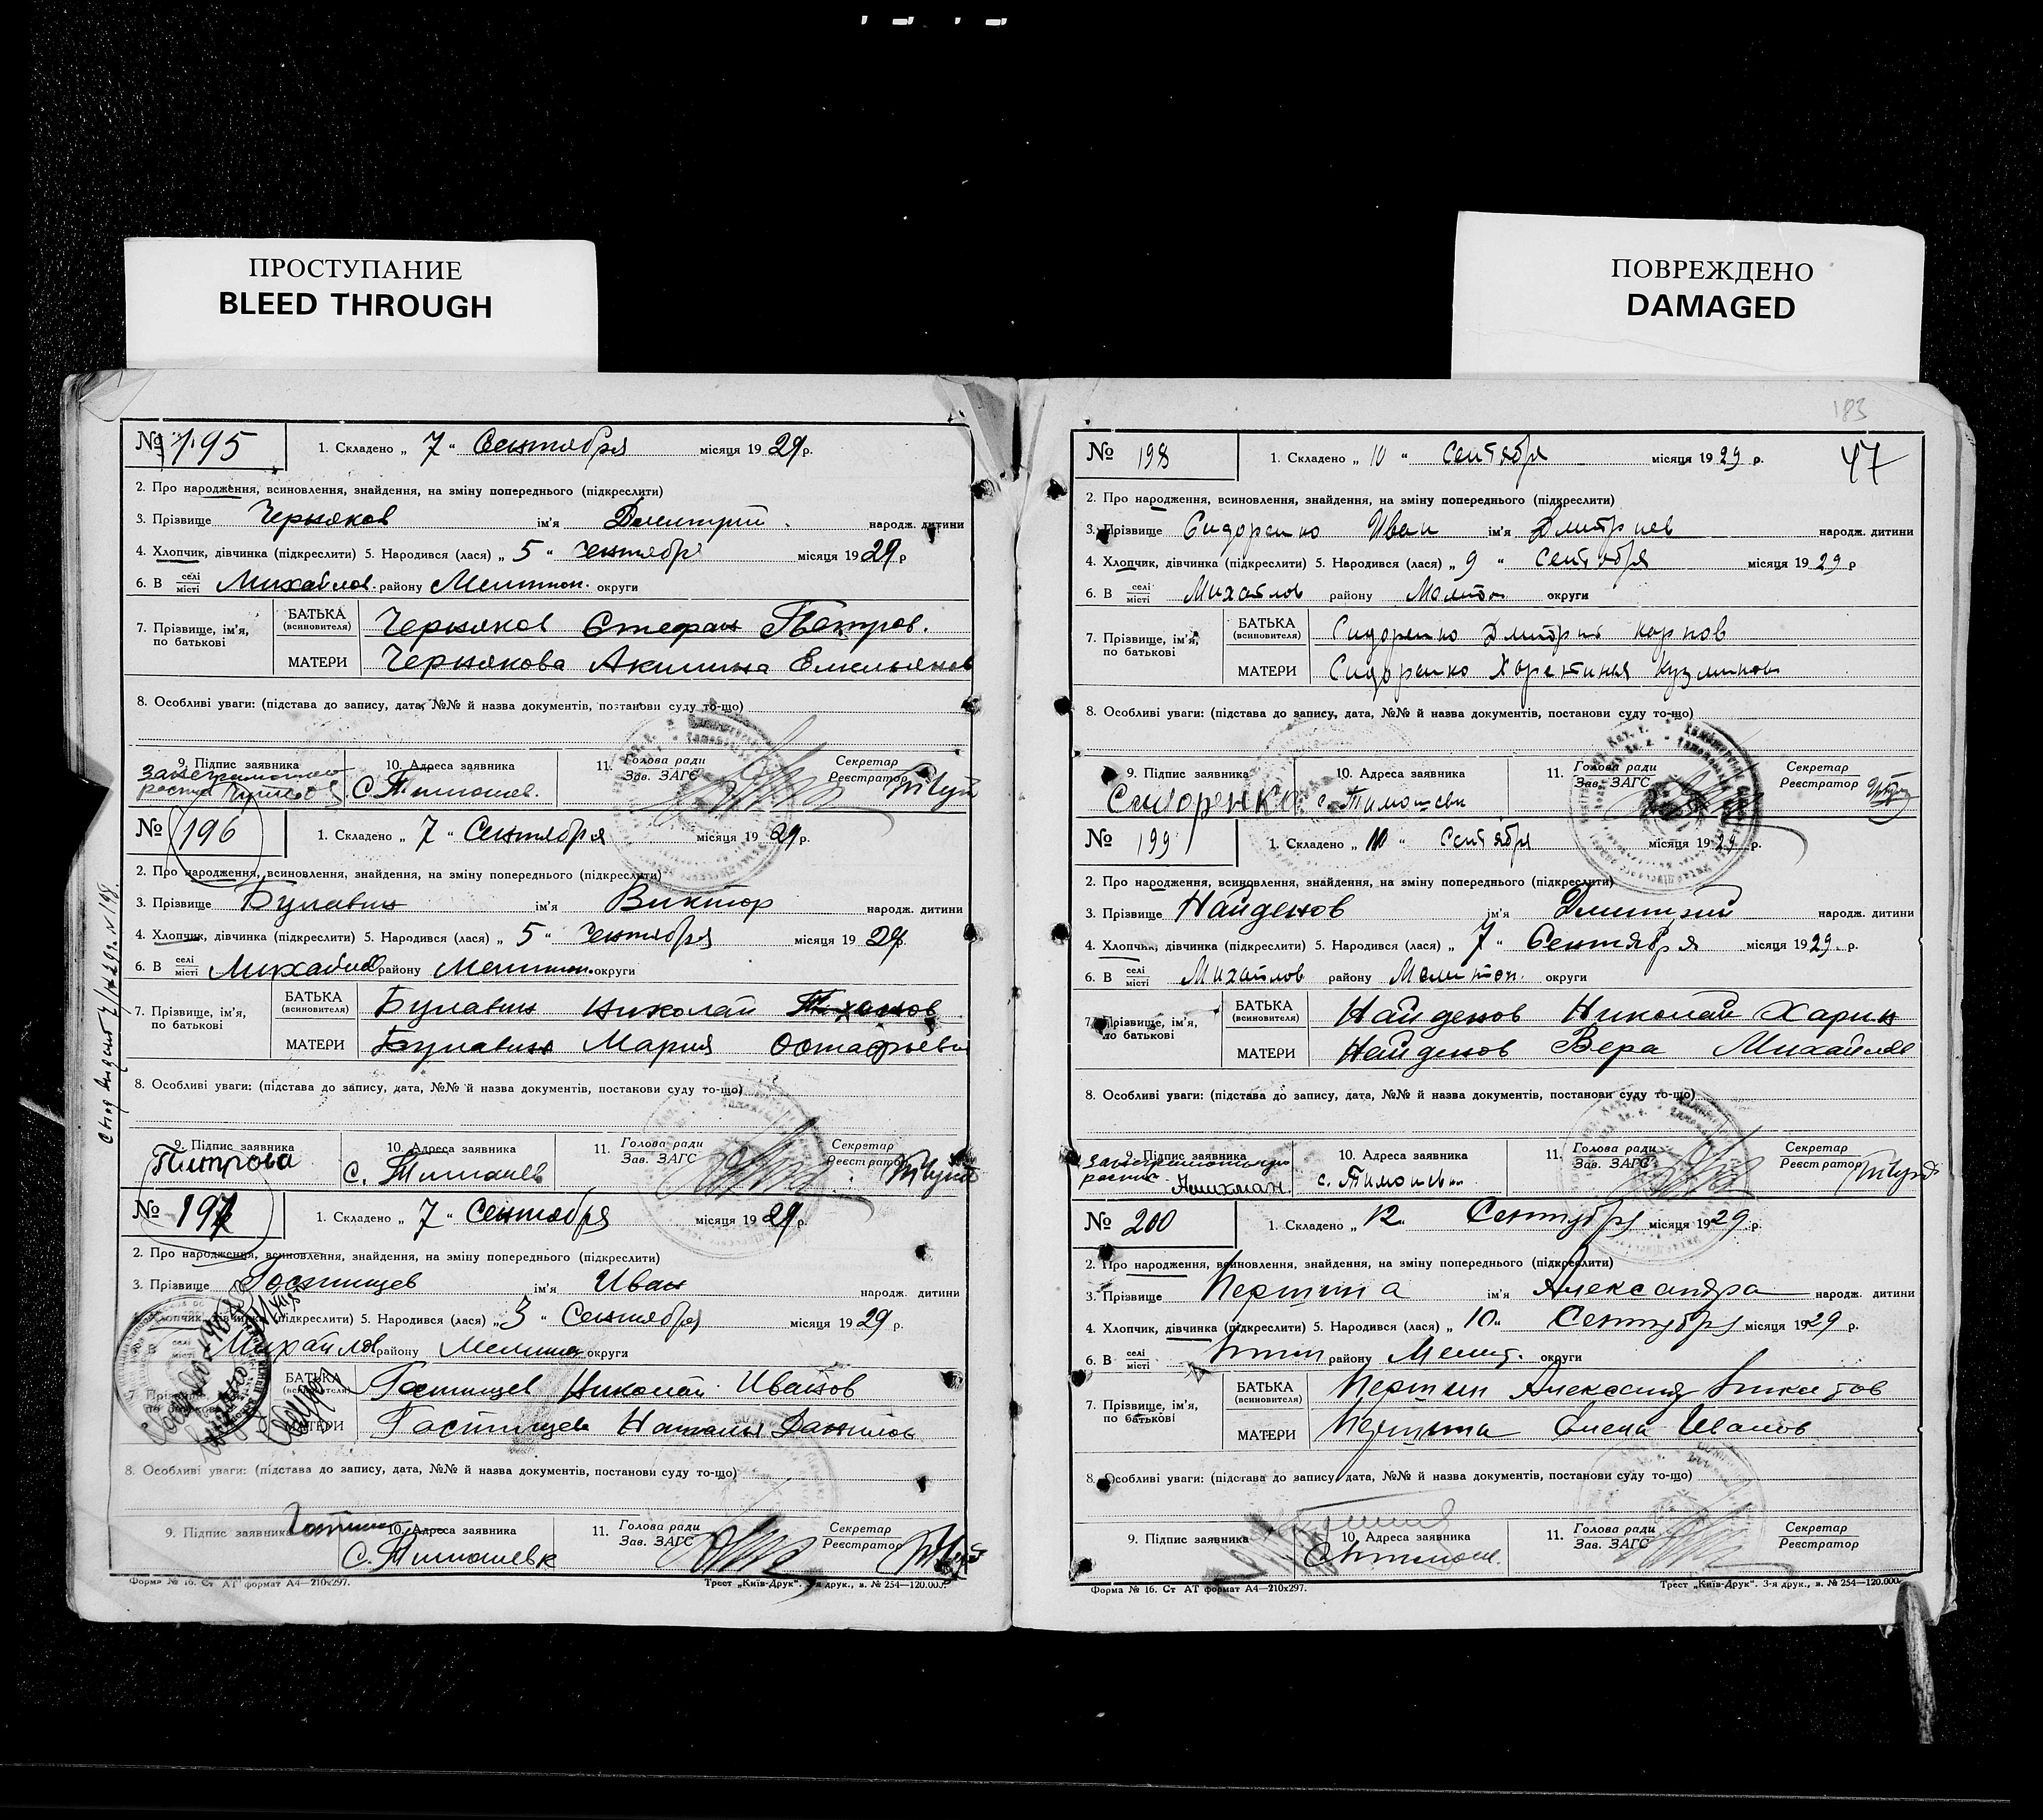 ПРОСТУПАНИЕ
BLEED THROUGH
ПОВРЕЖДЕНО
DAMAGED
№ 195 1. Складено „ 7 “ Сентября місяця 1929 р.
2. Про народження, всиновлення, знайдення, на зміну попереднього (підкреслити)
3. Прізвище Черняков ім'я Дмитрий народж. дитини
4. Хлопчик, дівчинка (підкреслити) 5. Народився (лася) „ 5 “ Сентября місяця 1929 р
6. В селі місті Михайлов. району Мелитоп. округи
7. Прізвище, ім'я, по батькові
БАТЬКА (всиновителя) Черняков Стефан Петров.
МАТЕРИ Чернякова Акилина Емельянов
8. Особливі уваги: (підстава до запису, дата, №№ й назва документів, постанови суду то-що)
9. Підпис заявника 10. Адреса заявника 11. Голова ради Зав. ЗАГС Секретар Реєстратор
за неграмотного С. Тимошев.
№ 196 1. Складено „ 7 “ Сентября місяця 1929 р.
2. Про народження, всиновлення, знайдення, на зміну попереднього (підкреслити)
3. Прізвище Булавин ім'я Виктор народж. дитини
4. Хлопчик, дівчинка (підкреслити) 5. Народився (лася) „ 5 “ Сентября місяця 1929 р.
6. В селі місті Михайлов району Мелитоп. округи
7. Прізвище, ім'я, по батькові
БАТЬКА (всиновителя) Булавин Николай Тихонов
МАТЕРИ Булавин Мария Остафьевн
8. Особливі уваги: (підстава до запису, дата, №№ й назва документів, постанови суду то-що)
9. Підпис заявника 10. Адреса заявника 11. Голова ради Зав. ЗАГС Секретар Реєстратор
С. Тимошев
№ 197 1. Складено „ 7 “ Сентября місяця 1929 р.
2. Про народження, всиновлення, знайдення, на зміну попереднього (підкреслити)
3. Прізвище Гостищев ім'я Иван народж. дитини
4. Хлопчик, дівчинка (підкреслити) 5. Народився (лася) „ 3 “ Сентября місяця 1929 р.
6. В селі місті Михайлов району Мелитоп округи
7. Прізвище, ім'я, по батькові
БАТЬКА (всиновителя) Гостищев Николай Иванов
МАТЕРИ Гостищев Наталья Данилов
8. Особливі уваги: (підстава до запису, дата, №№ й назва документів, постанови суду то-що)
9. Підпис заявника 10. Адреса заявника 11. Голова ради Зав. ЗАГС Секретар Реєстратор
С. Тимошевк
Форма № 16. Ст АТ формат А4—210х297. Трест „Київ-Друк“. 3-я друк., в. № 254—120.000.
183
47
№ 198 1. Складено „ 10 “ Сентября місяця 1929 р.
2. Про народження, всиновлення, знайдення, на зміну попереднього (підкреслити)
3. Прізвище Сидоренко Иван ім'я Дмитриев народж. дитини
4. Хлопчик, дівчинка (підкреслити) 5. Народився (лася) „ 9 “ Сентября місяця 1929 р
6. В селі місті Михайлов району Мелитоп округи
7. Прізвище, ім'я, по батькові
БАТЬКА (всиновителя) Сидоренко Дмитрий Карпов
МАТЕРИ Сидоренко Харетинья Кузминов
8. Особливі уваги: (підстава до запису, дата, №№ й назва документів, постанови суду то-що)
9. Підпис заявника 10. Адреса заявника 11. Голова ради Зав. ЗАГС Секретар Реєстратор
Сидоренко с. Тимошевк
№ 199 1. Складено „ 10 “ Сентября місяця 1929 р.
2. Про народження, всиновлення, знайдення, на зміну попереднього (підкреслити)
3. Прізвище Найденов ім'я Дмитрий народж. дитини
4. Хлопчик, дівчинка (підкреслити) 5. Народився (лася) „ 7 “ Сентября місяця 1929 р.
6. В селі місті Михайлов району Мелитоп. округи
7. Прізвище, ім'я, по батькові
БАТЬКА (всиновителя) Найденов Николай Харин
МАТЕРИ Найденов Вера Михайлов
8. Особливі уваги: (підстава до запису, дата, №№ й назва документів, постанови суду то-що)
9. Підпис заявника 10. Адреса заявника 11. Голова ради Зав. ЗАГС Секретар Реєстратор
с. Тимошевк
№ 200 1. Складено „ 12 “ Сентября місяця 1929 р.
2. Про народження, всиновлення, знайдення, на зміну попереднього (підкреслити)
3. Прізвище ім'я Александра народж. дитини
4. Хлопчик, дівчинка (підкреслити) 5. Народився (лася) „ 10 “ Сентября місяця 1929 р.
6. В селі місті району Мелит. округи
7. Прізвище, ім'я, по батькові
БАТЬКА (всиновителя) Александр
МАТЕРИ Елена Иванов
8. Особливі уваги: (підстава до запису, дата, №№ й назва документів, постанови суду то-що)
9. Підпис заявника 10. Адреса заявника 11. Голова ради Зав. ЗАГС Секретар Реєстратор
Форма № 16. Ст АТ формат А4—210х297. Трест „Київ-Друк“. 3-я друк., в. № 254—120.000